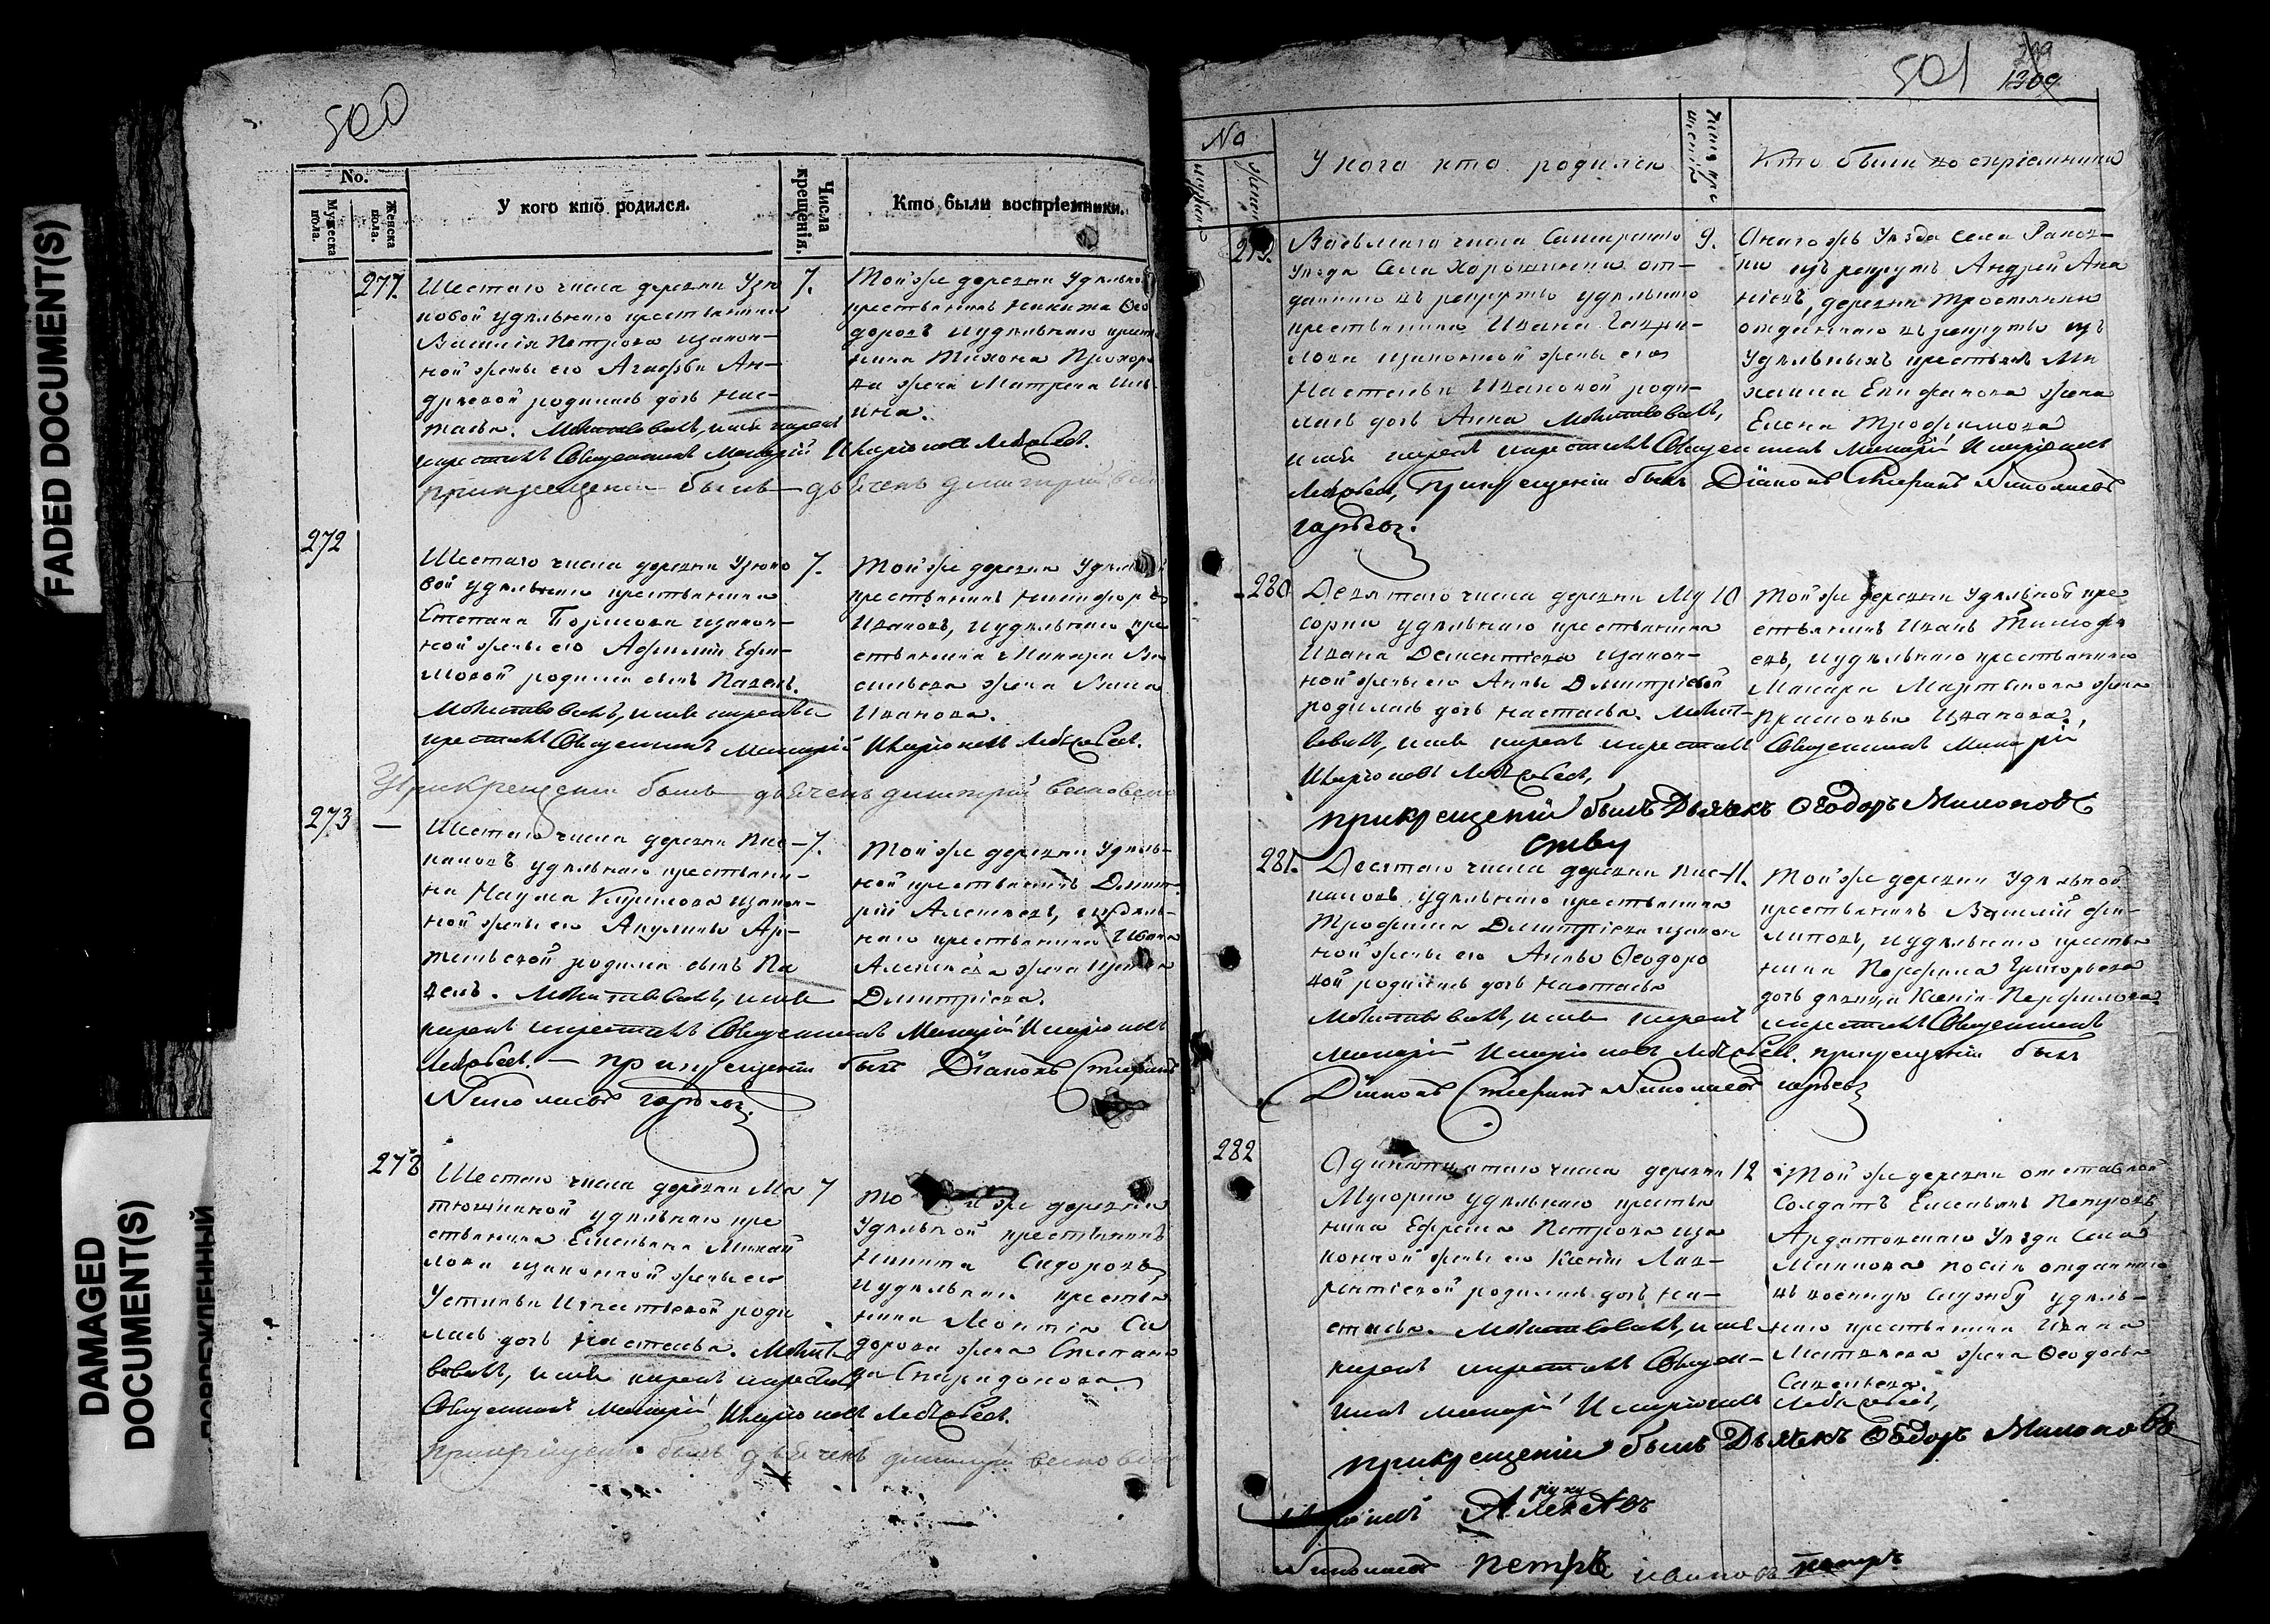 FADED DOCUMENT(S)
DAMAGED
DOCUMENT(S)
500
No.
Мужеска пола.
Женска пола.
У кого кто родился.
Числа крещенія.
Кто были воспріемники.
277.
Шестаго числа деревни Узю
ковой удѣльнаго крестьянина
Василія Петрова закон-
ной жены его Агафьи Ан-
дреевой родилась дочь Нас-
тасья. Молитвовалъ, имя нарекъ
и крестилъ Священникъ Макарій Иларіоновъ Лебедевъ.
при крещении былъ дьячекъ димитрий
7.
Той же деревни Удѣльной
крестьянинъ Никита Ѳео
доровъ и удѣльнаго кресть
нина Тихона Прохоро
ва жена Матрена
272
Шестаго числа деревни Узюко
вой удѣльнаго крестьянина
Степана Борисова закон-
ной жены его Афимьи Ефи-
мовой родился сынъ Павелъ.
Молитвовалъ, имя нарекъ и
крестилъ Священникъ Макарій Иларіоновъ Лебедевъ.
При крещении былъ дьячекъ димитрий
7.
Той же деревни Удѣльной
крестьянинъ Никифоръ
Ивановъ, и удѣльнаго кре
стьянина Макара Ва
сильева жена Анна
Иванова.
273
Шестаго числа деревни Пис-
каловъ удѣльнаго крестьяни-
на Наума Кирилова закон-
ной жены его Акулины Ар-
темьевой родился сынъ Па
велъ. Молитвовалъ, имя
нарекъ и крестилъ Священникъ Макарій Иларіоновъ
Лебедевъ. — При крещеніи былъ Діаконъ Стефанъ
Николаевъ Гордѣевъ.
7.
Той же деревни Удѣль-
ной крестьянинъ Димит-
рій Алексѣевъ, и удѣль-
наго крестьянина Ивана
Алексѣева жена
Димитріева.
278
Шестаго числа деревни Ма
тюшкиной удѣльнаго кре
стьянина Емельяна Михай
лова законной жены его
Устиньи Игнатьевой роди
лась дочь Настасья. Молит-
вовалъ, имя нарекъ и крестилъ
Священникъ Макарій Иларіоновъ Лебедевъ.
При крещении былъ дьячекъ димитрий
7
Той же деревни
Удѣльной крестьянинъ
Никита Сидоровъ,
и удѣльнаго крестья
нина Леонтія Си
дорова жена Степани
да Спиридонова.
501
1309
No
У кого кто родился
Числа кре щенія
Кто были воспріемники
279.
Восьмаго числа Самарскаго
Уѣзда Села Хорошинки от-
даннаго въ рекруты удѣльнаго
крестьянина Ивана Гаври-
лова законной жены его
Настасьи Ивановой роди-
лась дочь Анна Молитвовалъ,
имя нарекъ и крестилъ Священникъ Макарій Иларіоновъ
Лебедевъ, При крещеніи былъ Діаконъ Стефанъ Николаевъ
Гордѣевъ.
9.
Онаго жъ Уѣзда Села
изъ рекрутъ Андрей Ана
ніевъ, деревни Тростянки
отданнаго въ рекруты изъ
Удѣльныхъ крестьянъ Ми
хаила Епифанова жена
Елена Трофимова
280
Девятаго числа деревни Му
сорки удѣльнаго крестьянина
Ивана Дементіева закон-
ной жены его Анны Димитріевой
родилась дочь Настасья. Молит-
вовалъ, имя нарекъ и крестилъ Священникъ Макарій
Иларіоновъ Лебедевъ,
при крещении былъ Дьячекъ Ѳеодоръ Милоновъ
10
Той же деревни Удѣльной кре
стьянинъ Иванъ Тимофе
евъ, и удѣльнаго крестьянина
Макара Мартынова жена
Прасковья Иванова.
281.
Десятаго числа деревни Пис-
каловъ удѣльнаго крестьянина
Трофима Димитріева закон
ной жены его Анны Ѳеодоро
вой родилась дочь Настасья
Молитвовалъ, имя нарекъ и крестилъ Священникъ
Макарій Иларіоновъ Лебедевъ. При крещеніи былъ
Діаконъ Стефанъ Николаевъ Гордѣевъ
11.
Той же деревни Удѣльной
крестьянинъ Василій Фи-
липовъ, и удѣльнаго крестья
нина Перфила Григорьева
дочь дѣвица Ксенія Перфилова.
282
Одинатцатаго числа деревни
Мусорки удѣльнаго крестья
нина Ефрема Петрова за
конной жены его Ксеніи Лав-
рентіевой родилась дочь На-
стасья. Молитвовалъ, имя
нарекъ и крестилъ Священ-
никъ Макарій Иларіоновъ Лебедевъ,
при крещении былъ Дьячекъ Ѳеодоръ Милоновъ
12
Той же деревни отставной
Солдатъ Емельянъ Петровъ,
Ардатовскаго Уѣзда Села
отданнаго
въ военную службу удѣль-
наго крестьянина Ивана
Матвѣева жена Ѳеодосья
Савельева.
руку
Николаевъ Петръ Ивановъ Петръ